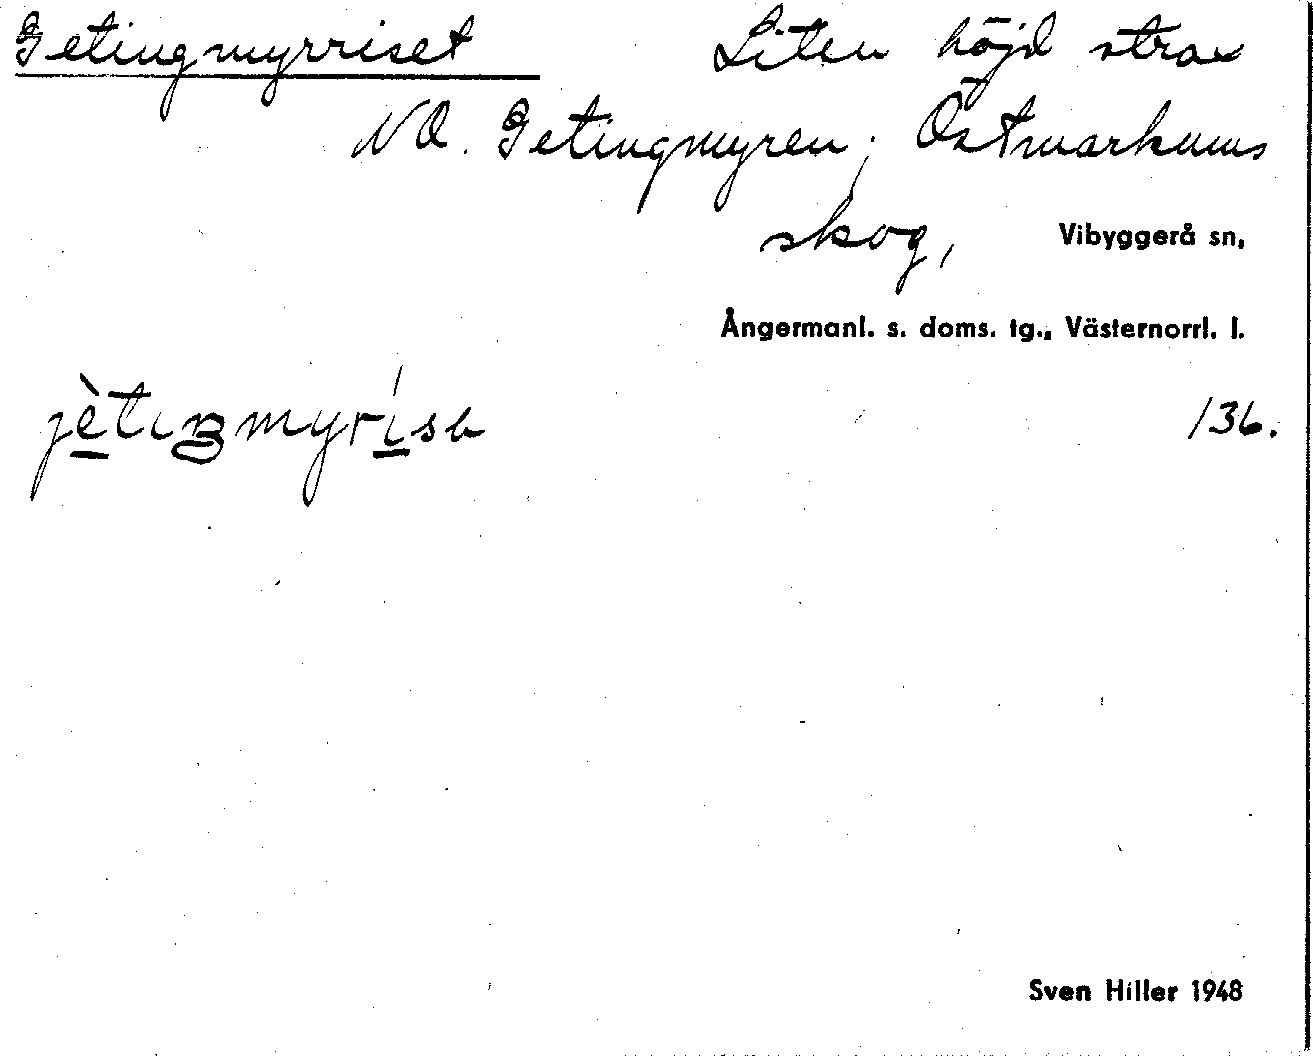 Getingmyrriset Liten höjd strax
NO. Getingmyren; Östmarkums
skog, Vibyggerå sn,
Ångermanl. s. doms. tg., Västernorrl. l.
136.
Sven Hiller 1948